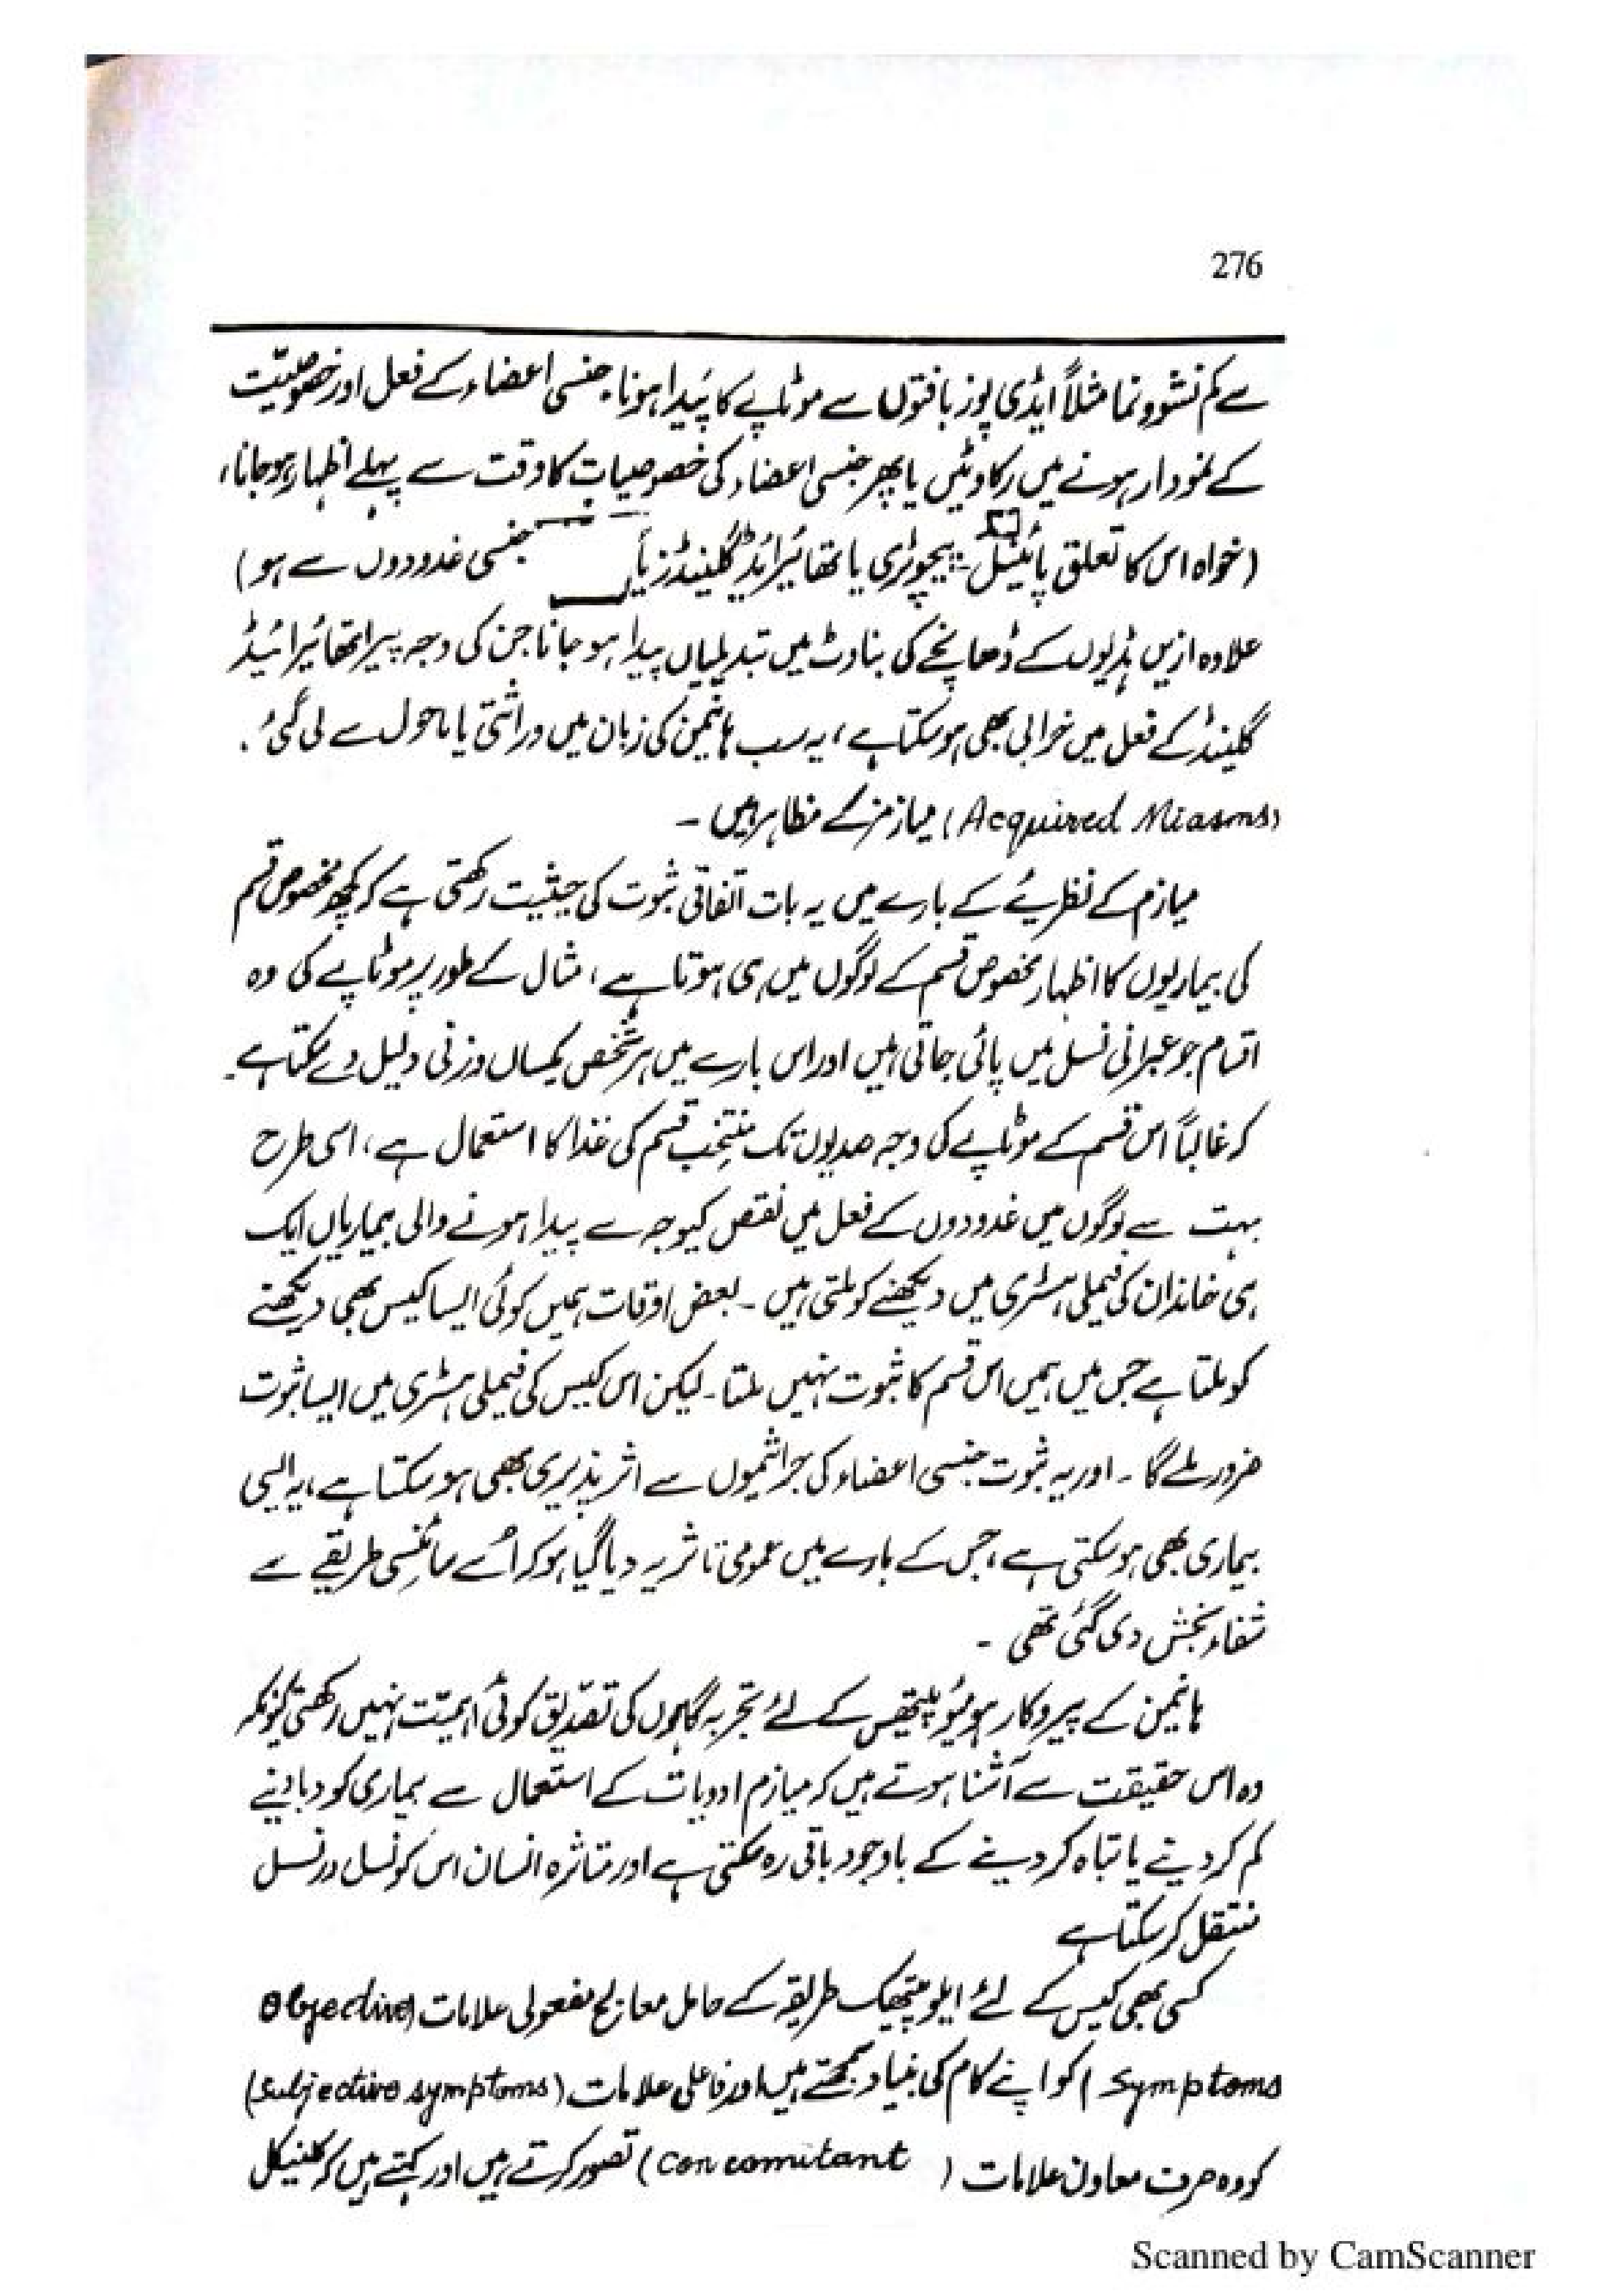 276
سے کم نشوونما مثلاً ایڈی پوز بافتوں سے موٹاپے کا پیدا ہونا۔ جنسی اعضاء کے فعل اور خصوصیّت
کے نمودار ہونے میں رکاوٹیں یا پھر جنسی اعضاء کی خصوصیات کا وقت سے پہلے اظہار ہو جانا،
(خواہ اس کا تعلق پائنیل پیچوٹری یا تھائیرائڈ گلینڈز یا جنسی غدودوں سے ہو)
علاوہ ازیں ہڈیوں کے ڈھانچے کی بناوٹ میں تبدیلیاں پیدا ہو جانا جن کی وجہ پیراتھائیرائیڈ
گلینڈ کے فعل میں خرابی بھی ہو سکتا ہے، یہ سب ہانیمن کی زبان میں وراثتی یا ماحول سے لی گئی
(Acquired Miasms) میازمز کے مظاہر ہیں ۔
میازم کے نظریئے کے بارے میں یہ بات اتفاقی ثبوت کی حیثیت رکھتی ہے کہ کچھ مخصوص قسم
کی بیماریوں کا اظہار مخصوص قسم کے لوگوں میں ہی ہوتا ہے، مثال کے طور پر موٹاپے کی وہ
اقسام جو عبرانی نسل میں پائی جاتی ہیں اور اس بارے میں ہر شخص یکساں وزنی دلیل دے سکتا ہے۔
کہ غالباً اس قسم کے موٹاپے کی وجہ صدیوں تک منتخب قسم کی غذا کا استعمال ہے، اسی طرح
بہت سے لوگوں میں غدودوں کے فعل میں نقص کیوجہ سے پیدا ہونے والی بیماریاں ایک
ہی خاندان کی فیملی ہسٹری میں دیکھنے کو ملتی ہیں ۔ بعض اوقات ہمیں کوئی ایسا کیس بھی دیکھنے
کو ملتا ہے جس میں ہمیں اس قسم کا ثبوت نہیں ملتا ۔ لیکن اس کیس کی فیملی ہسٹری میں ایسا ثبوت
ضرور ملے گا ۔ اور یہ ثبوت جنسی اعضاء کی جراثیموں سے اثر پذیری بھی ہو سکتا ہے، یہ ایسی
بیماری بھی ہو سکتی ہے، جس کے بارے میں عمومی تاثر یہ دیا گیا ہو کہ اُسے سائنسی طریقے سے
شفاء بخش دی گئی تھی ۔
ہانیمن کے پیروکار ہومیوپیتھس کے لئے تجربہ گاہوں کی تصدیق کوئی اہمیّت نہیں رکھتی کیونکہ
وہ اس حقیقت سے آشنا ہوتے ہیں کہ میازم ادویات کے استعمال سے بیماری کو دبا دینے
کم کر دینے یا تباہ کر دینے کے باوجود باقی رہ سکتی ہے اور متاثرہ انسان اس کو نسل در نسل
منتقل کر سکتا ہے
کسی بھی کیس کے لئے ایلوپیتھک طریقہ کے حامل معالج مفعولی علامات (Objective
Symptoms) کو اپنے کام کی بنیاد سمجھتے ہیں اور فاعلی علامات (Subjective symptoms)
کو وہ صرف معاون علامات (Concomitant) تصور کرتے ہیں اور کہتے ہیں کہ کلینیکل
Scanned by CamScanner